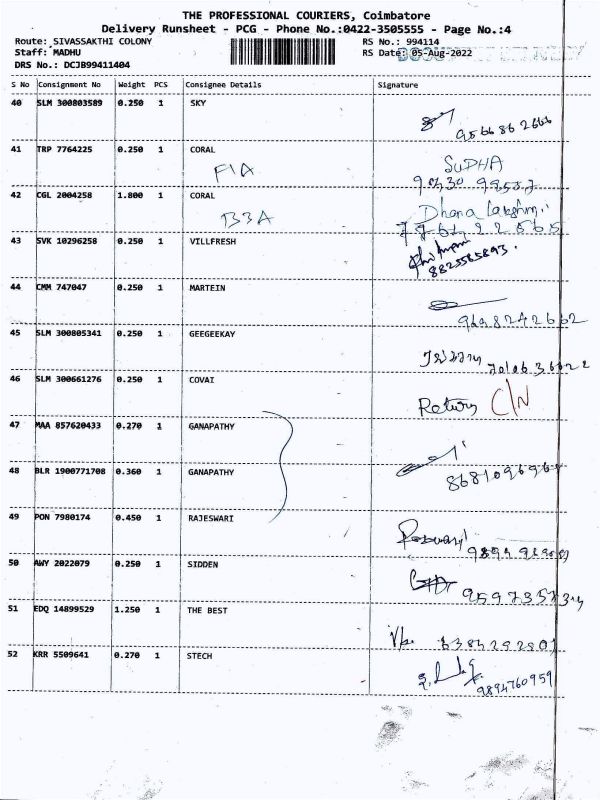 THE PROFESSIONAL COURIERS, Coimbatore
Delivery Runsheet - PCG - Phone No.:0422-3505555 - Page No.:4
Route: SIVASSAKTHI COLONY RS No.: 994114
Staff: MADHU RS Date: 05-Aug-2022
DRS No.: DCJB99411404
S No Consignment No Weight PCS Consignee Details Signature
40 SLM 300803589 0.250 1 SKY
9566862666
41 TRP 7764225 0.250 1 CORAL SUDHA
F1A
42 CGL 2004258 1.800 1 CORAL Dhana Lakshmi
B3A
43 SVK 10296258 0.250 1 VILLFRESH
8825585893.
44 CMM 747047 0.250 1 MARTEIN
9698242662
45 SLM 300805341 0.250 1 GEEGEEKAY
46 SLM 300661276 0.250 1 COVAI
Return C/N
47 MAA 857620433 0.270 1 GANAPATHY
48 BLR 1900771708 0.360 1 GANAPATHY
49 PON 7980174 0.450 1 RAJESWARI
50 AWY 2022079 0.250 1 SIDDEN
51 EDQ 14899529 1.250 1 THE BEST
52 KRR 5509641 0.270 1 STECH
9894760959